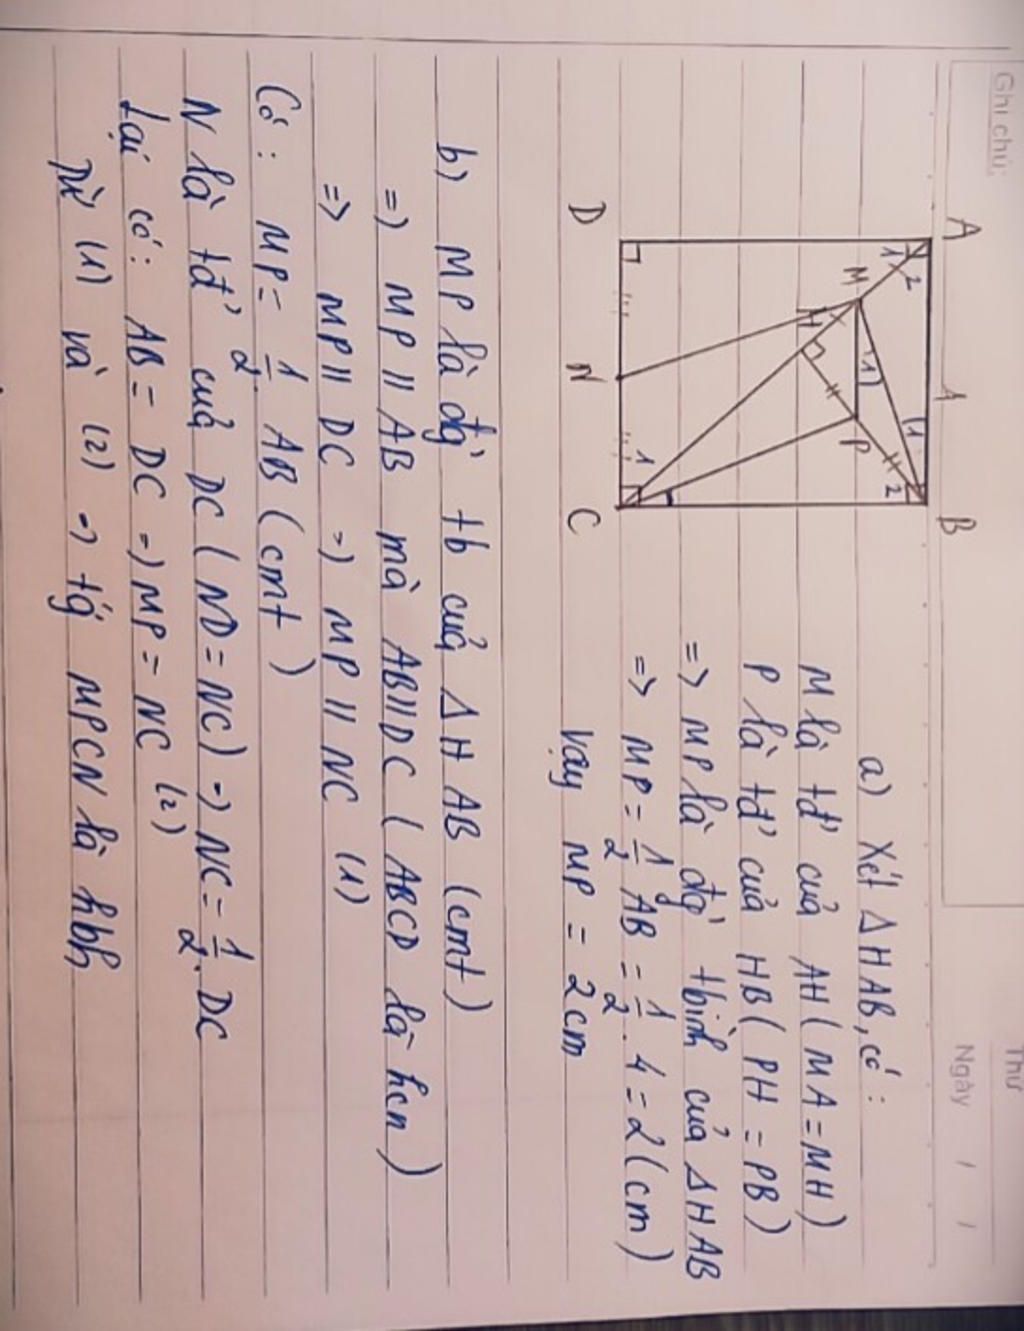 Ghi chú:
Thứ
Ngày / /
A A B
1 2 1 2
M 1 P
H
1
D N C
a) Xét Δ HAB, có:
M là tđ' của AH ( MA = MH )
P là tđ' của HB ( PH = PB )
=> MP là đg` tbình của Δ HAB
=> MP = 1/2 AB = 1/2 . 4 = 2 (cm)
Vậy MP = 2cm
b) MP là đg` tb của Δ HAB (cmt)
=> MP // AB mà AB // DC ( ABCD là hcn )
=> MP // DC => MP // NC (1)
Có: MP = 1/2 . AB ( cmt )
N là tđ' của DC ( ND = NC ) => NC = 1/2 . DC
Lại có: AB = DC => MP = NC (2)
Từ (1) và (2) => tg' MPCN là hbh